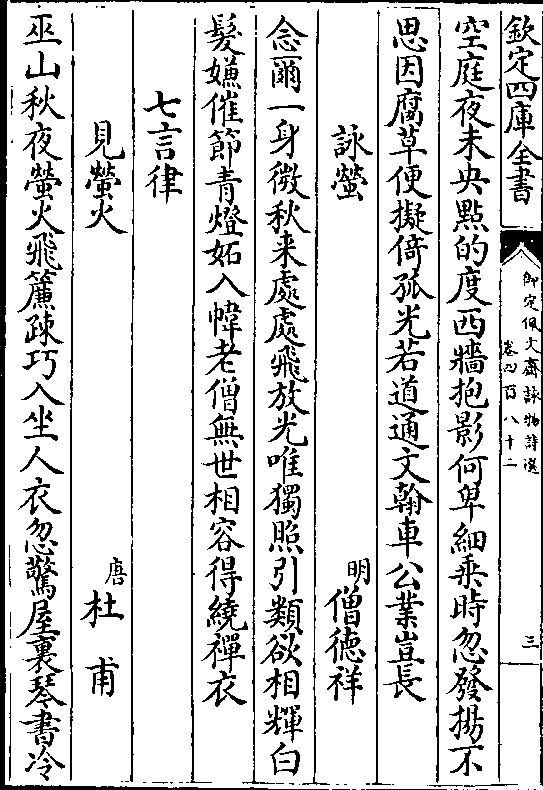 欽定四庫全書
御定佩文齋詠物詩選
卷四百八十二
三
空庭夜未央點的度西牆抱影何卑細乘時忽發揚不
思因腐草便擬倚孤光若道通文翰車公業豈長
詠螢
明僧德祥
念爾一身微秋来處處飛放光唯獨照引類欲相輝白
髮嫌催節青燈妬入幃老僧無世相容得繞禪衣
七言律
見螢火
唐杜甫
巫山秋夜螢火飛簾疎巧入坐人衣忽驚屋裏琴書冷